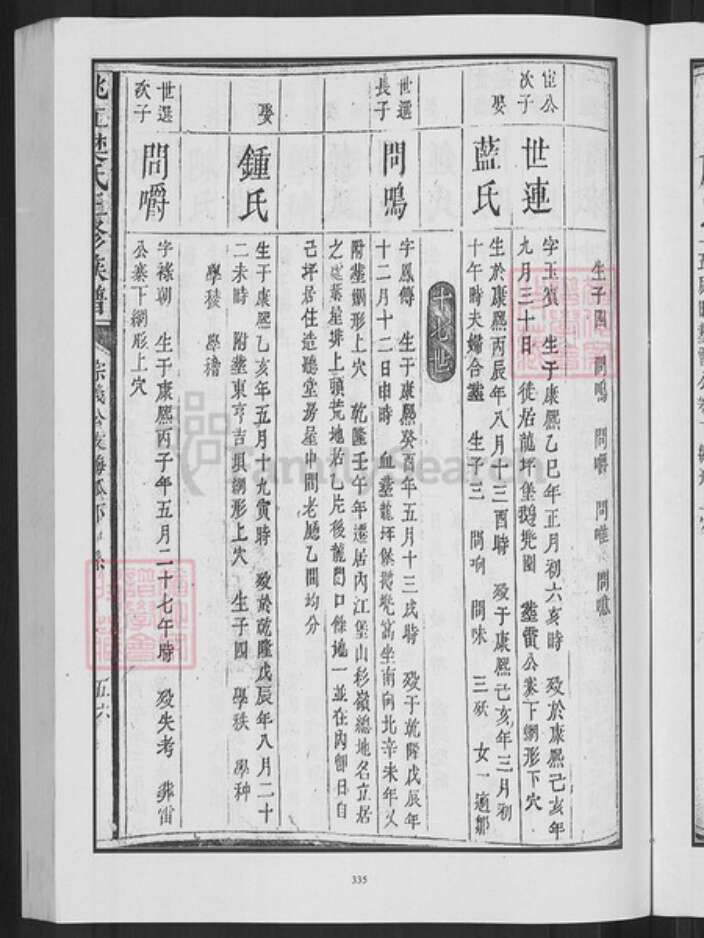 生子四 問鳴 問嚼 問唯 問噫
宦公
次子
世連
字玉賓 生于康熙乙巳年正月初六亥時 歿於康熙己亥年
九月三十日 徒居龍坪堡鵝甖園 葬雷公寨下網形下穴
娶
藍氏
生於康熙丙辰年八月十三酉時 歿于康熙己亥年三月初
十午時夫婦合葬 生子三 問响 問味 三 女一適鄒
十七世
世選
長子
問鳴
字鳳傳 生于康熙癸酉年五月十三戌時 歿于乾隆戊辰年
十二月十二日申時 血葬龍坪堡 坐南向北辛未年又
附葬網形上穴 乾隆壬午年遷居內江堡山移嶺總地名立居
之 葉屋排上頭荒地若乙片後龍門口餘地一並在內卽日自
己坪居住造聽堂房屋中間老廳乙間均分
娶
鍾氏
生于康熙乙亥年五月十九寅時 歿於乾隆戊辰年八月二十
二未時 附葬東亨吉垻網形上穴 生子四 學秩 學种
學稜 學穭
世選
次子
問嚼
字 朝 生于康熙丙子年五月二十七午時 歿失考 葬雷
公寨下網形上穴
樊氏 修族譜
宗義公支 系
五六
335
FamilySearch